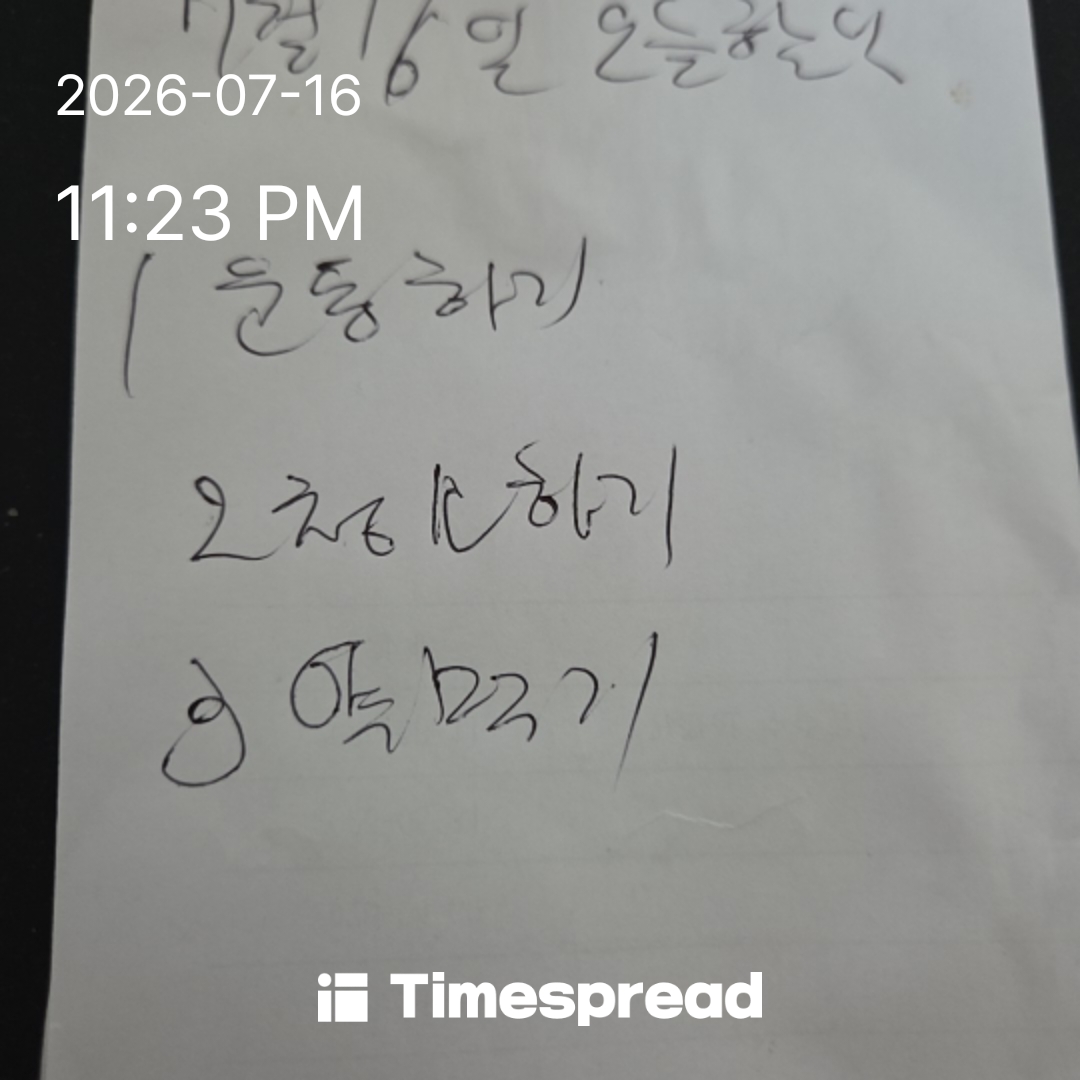 7월 16일 오늘할일
2026-07-16
11:23 PM
1 운동하기
2 청소하기
3 약먹기
Timespread